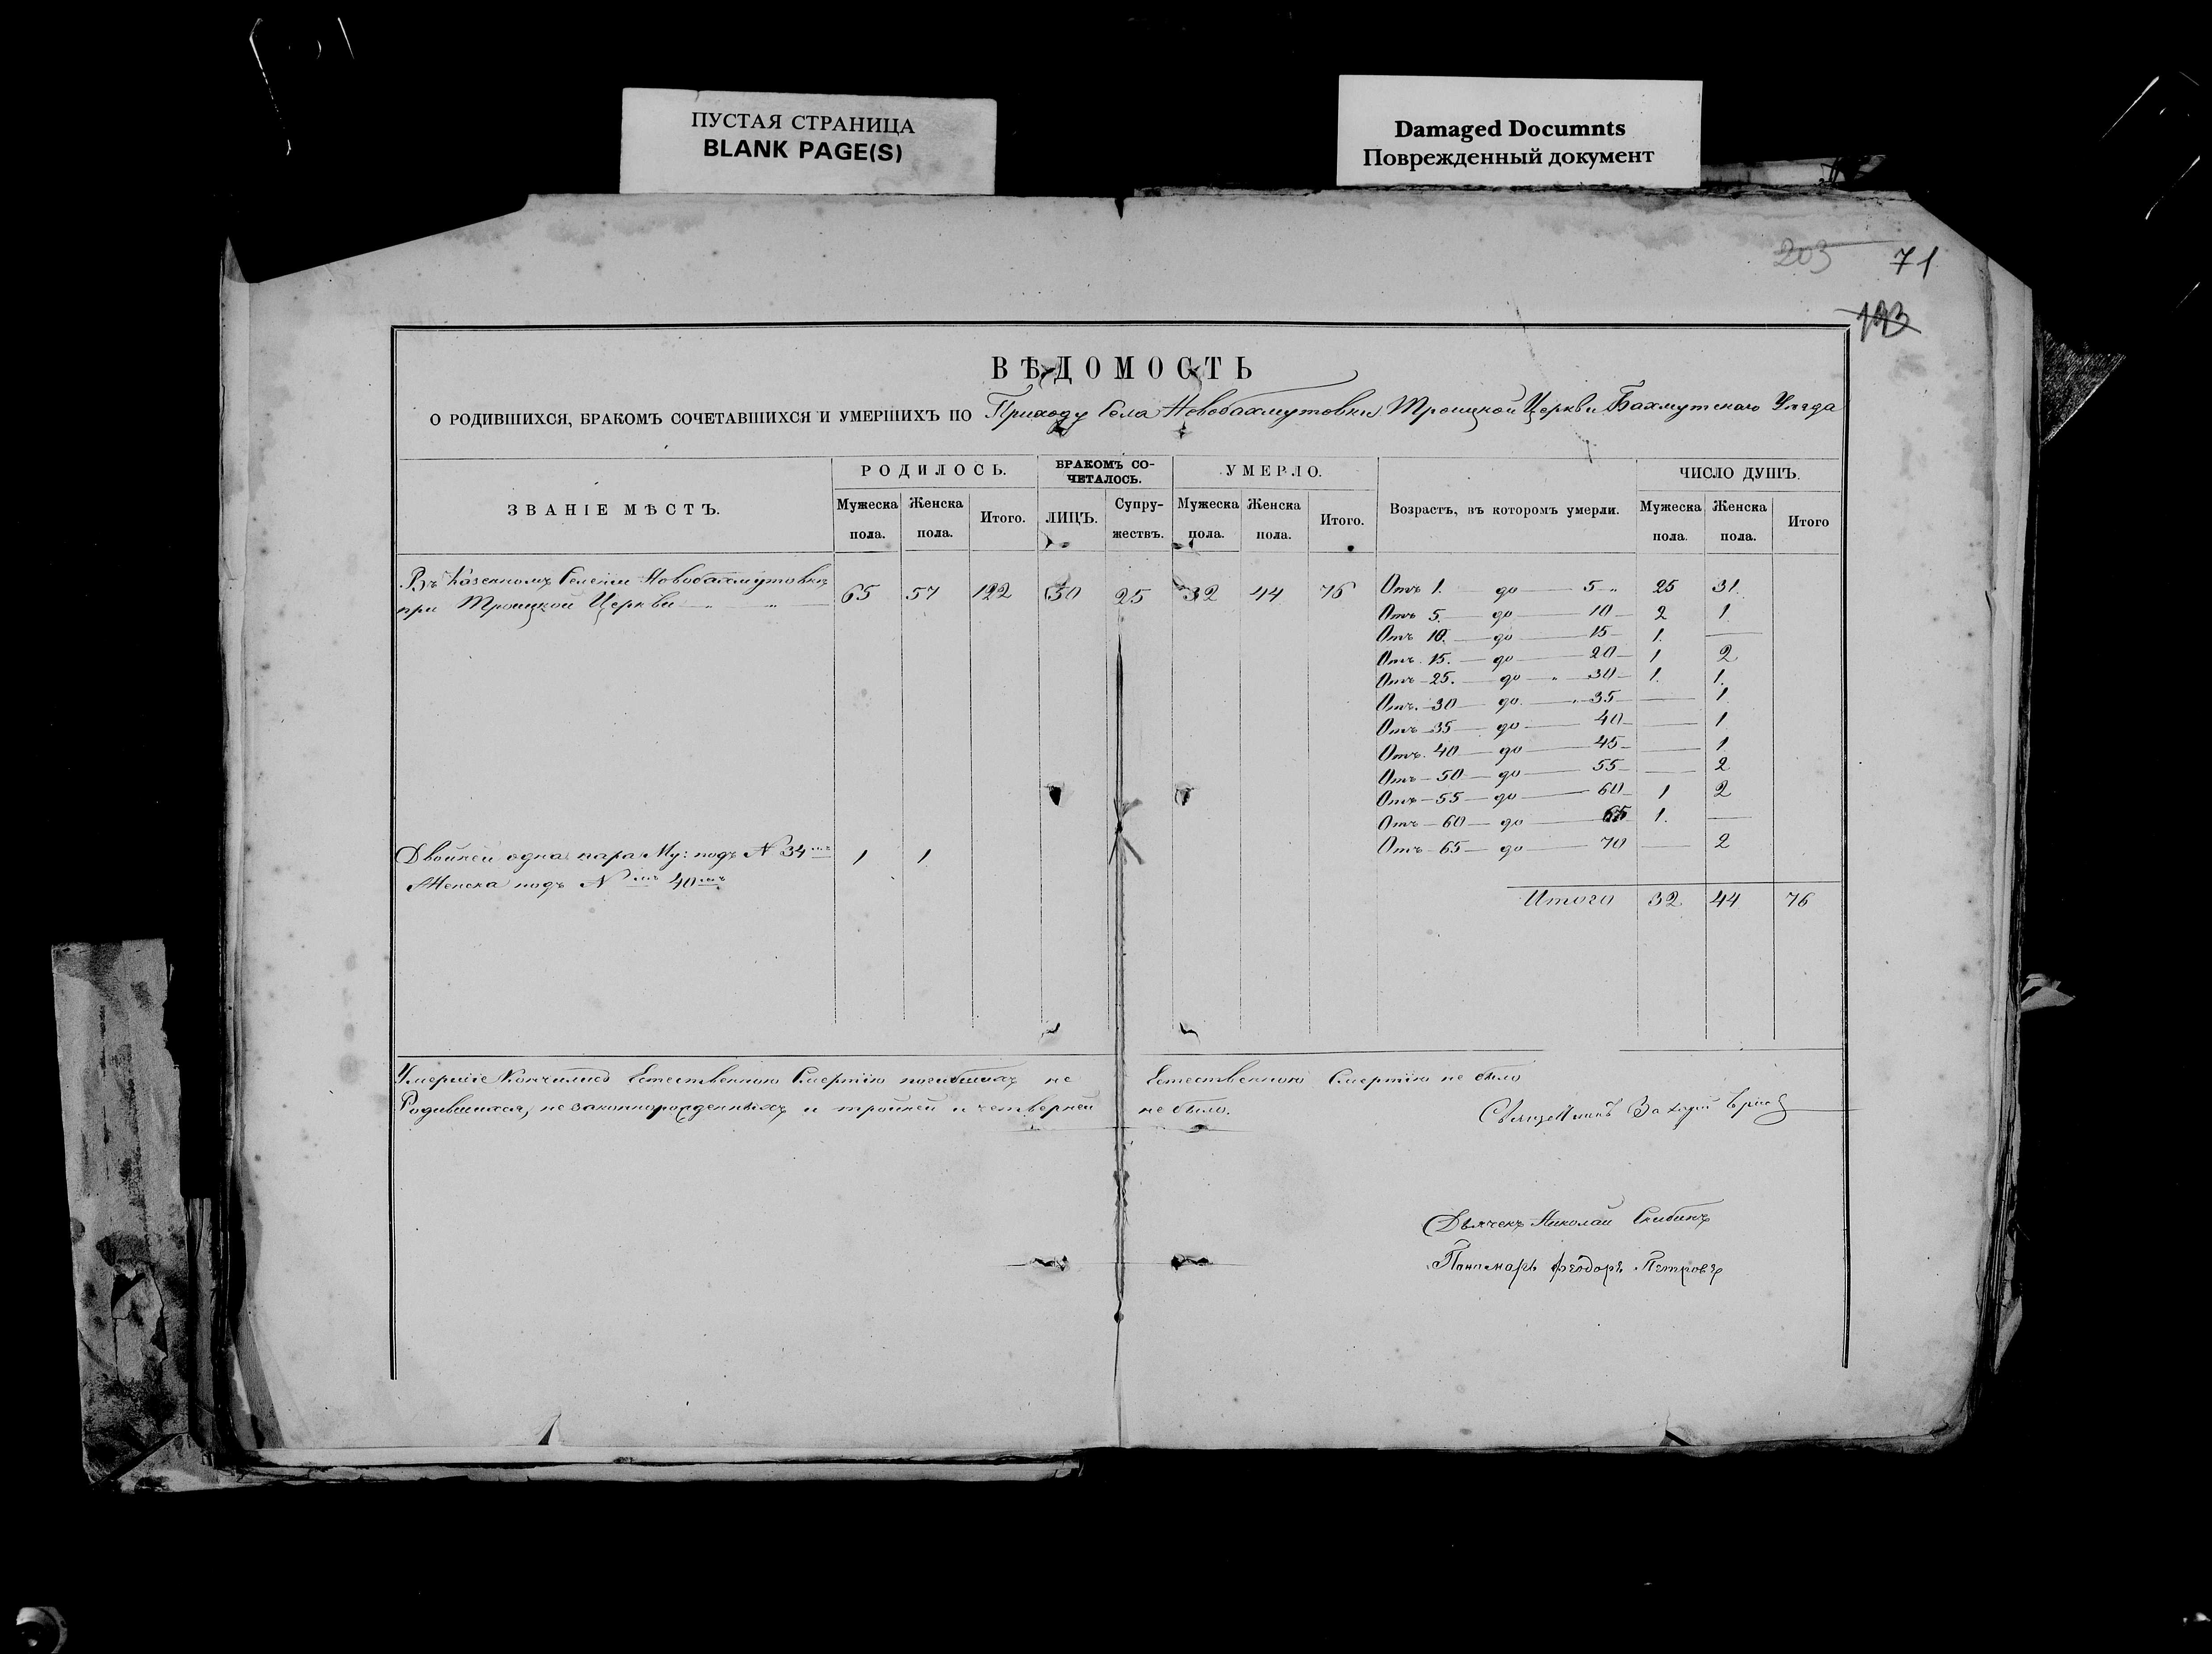 ПУСТАЯ СТРАНИЦА
BLANK PAGE(S)
Damaged Documnts
Поврежденный документ
203 71
193
ВѢДОМОСТЬ
О РОДИВШИХСЯ, БРАКОМЪ СОЧЕТАВШИХСЯ И УМЕРШИХЪ ПО Приходу Села Новобахмутовки Троицкой Церкви Бахмутскаго Уезда
ЗВАНІЕ МѢСТЪ. РОДИЛОСЬ. БРАКОМЪ СО-ЧЕТАЛОСЬ. УМЕРЛО. Возрастъ, въ которомъ умерли. ЧИСЛО ДУШЪ.
Мужеска пола. Женска пола. Итого. ЛИЦЪ. Супру-жествъ. Мужеска пола. Женска пола. Итого. Мужеска пола. Женска пола. Итого
Въ Казенномъ Селении Новобахмутовкѣ 65 57 122 50 25 32 44 76 Отъ 1. до 5 25 31.
при Троицкой Церкви
Отъ 5. до 10 2 1.
Отъ 10. до 15 1. —
Отъ 15. до 20 1 2
Отъ 25. до 30 1. 1.
Отъ 30 до 35 — 1
Отъ 35 до 40 — 1
Отъ 40 до 45 — 1
Отъ 50 до 55 — 2
Отъ 55 до 60 1 2
Отъ 60 до 65 1. —
Отъ 65 до 70 — 2
Двойней одна пара Му: подъ N 34мъ 1 1
Женска подъ Nмъ 40мъ
Итого 32 44 76
Умершіе Кончились Естественною Смертію погибшихъ не Естественною Смертію не было
Родившихся, не законнорожденныхъ и тройней и четверней не было.
Священникъ
Дьячекъ Николай Скибинъ
Пономарь Феодоръ Петровъ